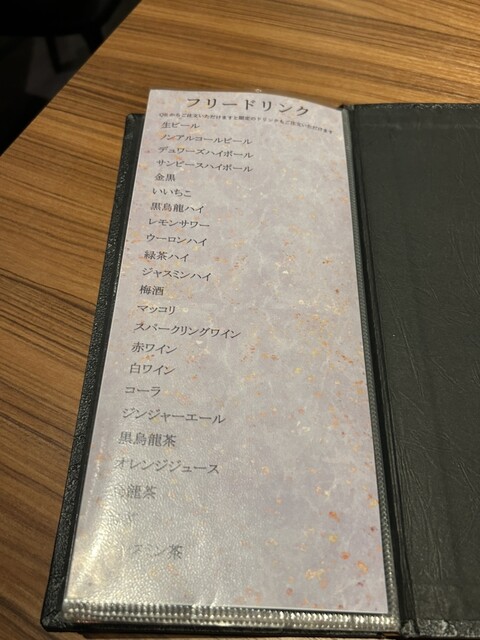 フリードリンク
生ビール
ノンアルコールビール
デュワーズハイボール
サンピースハイボール
金黒
いいちこ
黒烏龍ハイ
レモンサワー
ウーロンハイ
緑茶ハイ
ジャスミンハイ
梅酒
マッコリ
スパークリングワイン
赤ワイン
白ワイン
コーラ
ジンジャーエール
黒烏龍茶
オレンジジュース
龍茶
ミン茶